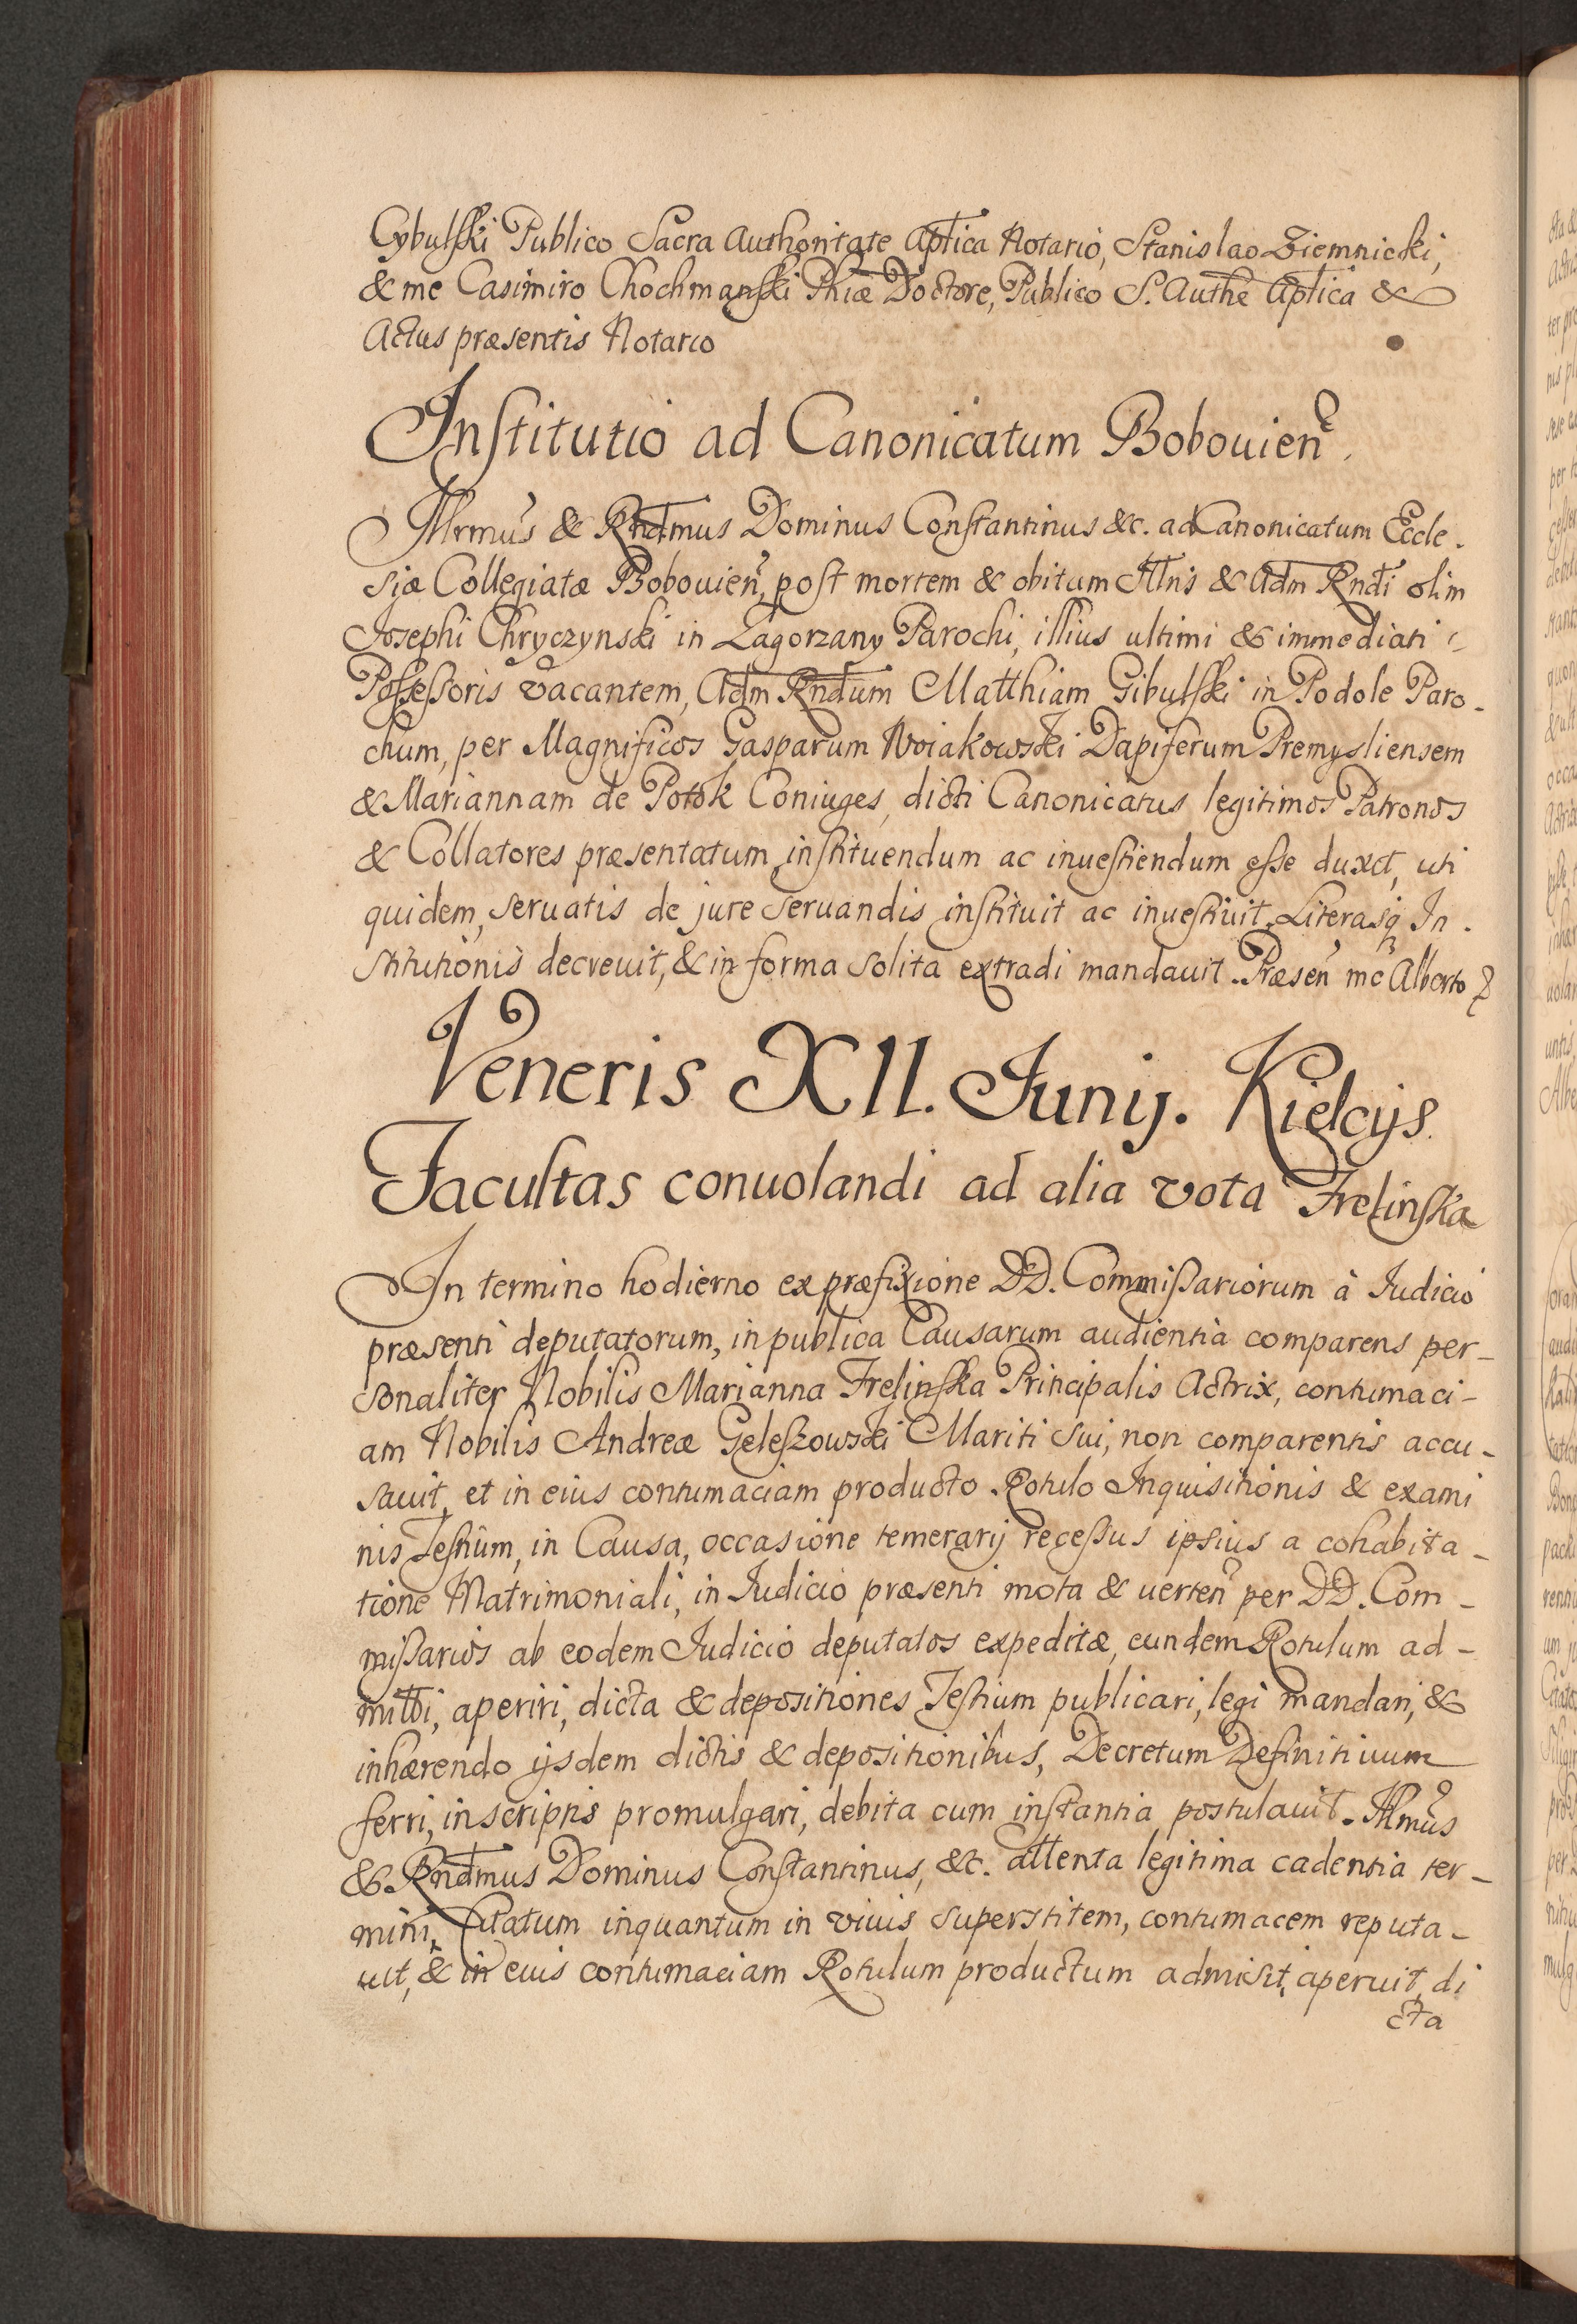 Cybulski Publico Sacra Authoritate Aptica Notario, Stanislao Ziemnicki,
& me Casimiro Chochmanski Phiæ Doctore, Publico S. Authe Aptica &
Actus præsentis Notario
Institutio ad Canonicatum Bobouien.
Illrmus & Rndmus Dominus Constantinus &c. ad Canonicatum Eccle-
siæ Collegiatæ Bobouien, post mortem & obitum Illris & Adm Rndi olim
Josephi Chryczynski in Zagorzany Parochi, illius ultimi & immediati
Possessoris vacantem, Adm Rndum Matthiam Gibulski in Podole Paro-
chum, per Magnificos Gasparum Woiakowski Dapiferum Premysliensem
& Mariannam de Potok Coniuges, dicti Canonicatus legitimos Patronos
& Collatores præsentatum, instituendum ac inuestiendum esse duxit, uti
quidem, seruatis de jure seruandis instituit ac inuestiuit, Literasq In-
stitutionis decreuit, & in forma solita extradi mandauit. Præsen me Alberto
Veneris XII. Junij. Kielcijs.
Facultas conuolandi ad alia vota Frelinska
In termino hodierno ex præfixione DD. Commissariorum à Iudicio
præsenti deputatorum, in publica Causarum audientia comparens per-
sonaliter Nobilis Marianna Frelinska Principalis Actrix, contumaci-
am Nobilis Andreæ Geleszowski Mariti sui, non comparentis accu-
sauit, et in eius contumaciam producto Rotulo Inquisitionis & exami
nis Testium, in Causa, occasione temerarij recessus ipsius a cohabita-
tione Matrimoniali, in Iudicio præsenti mota & uerten per DD. Com-
missarios ab eodem Iudicio deputatos expeditæ, eundem Rotulum ad-
mitti, aperiri, dicta & depositiones Testium publicari, legi mandari, &
inhærendo ijsdem dictis & depositionibus, Decretum Definitiuum
ferri, in scriptis promulgari, debita cum instantia postulauit. Illmus
& Rndmus Dominus Constantinus, &c. attenta legitima cadentia ter-
mini, Citatum inquantum in viuis superstitem, contumacem reputa-
uit, & in eius contumaciam Rotulum productum admisit, aperuit, di
cta